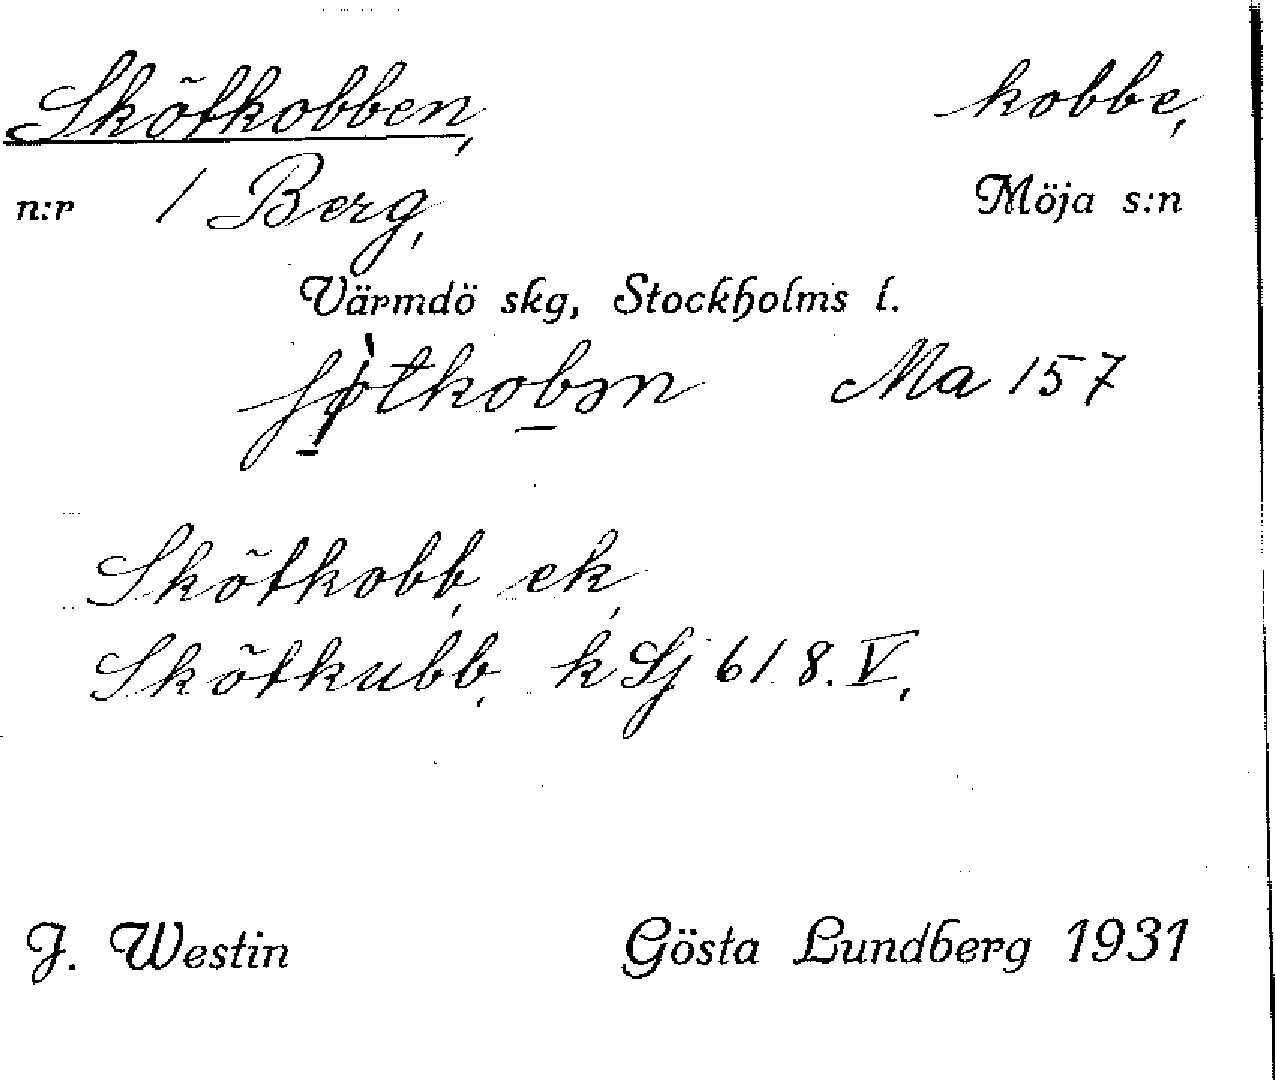 Skötkobben, kobbe,
n:r 1 Berg, Möja s:n
Värmdö skg, Stockholms l.
Ma 157
Skötkobb, ek,
Skötkubb, k Sj 61 8. V,
J. Westin Gösta Lundberg 1931